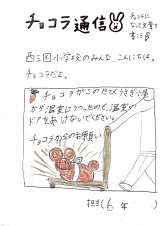 チョコラ通信
チョコラに
なって文章を
書こう
西三国小学校のみんな、こんにちは。
チョコラだよ。
チョコラがこのたびうさぎ小屋
から温室にうつったので、温室の
ドアをあけないでください。
チョコラからのお願い
担当(6年 )